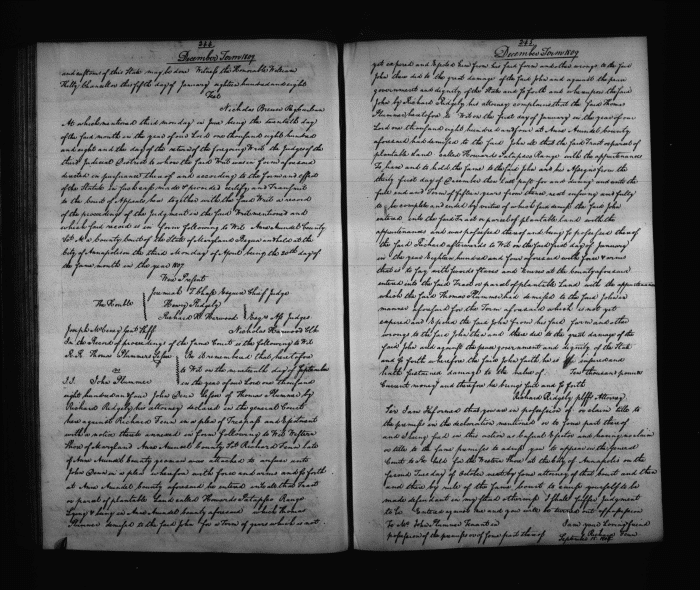 244
December Term 1809
and customs of this State may be done Witness the Honourable William
Kilty Chancellor this fifth day of January eighteen hundred and eight
Test
Nicholas Brewer Reg Cur Can
At which mentioned third monday in June being the twentieth day
of the said month in the year of our Lord one thousand eight hundred
and eight and the day of the return of the foregoing Writ the Judges of the
third Judicial District to whom the said Writ was in form aforesaid
directed in pursuance thereof and according to the form and effect
of the Statute in such case made & provided certify and Transmit
to the Court of Appeals here together with the said Writ a record
of the proceedings of the Judgment in the said Writ mentioned and
which said record is in form following to Wit Anne Arundel County
Sct At a County Court of the State of Maryland Begun and held at the
City of Annapolis on the third Monday of April being the 20th day of
the same month in the year 1807
Were Present
Jeremiah T Chase Esquire Chief Judge
The Honble
Henry Ridgely
Richard H Harwood Esqrs Ass Judges
Joseph McCeney Esqr Shff Nicholas Harwood Clk
In the Record of proceedings of the same Court is the following to Wit
R.R. Thomas Plummers Lessee Be it remembered that heretofore
vs to Wit on the nineteenth day of September
J.J. John Plummer in the year of our Lord one thousand
eight hundred and four John Denn Lessee of Thomas Plummer by
Richard Ridgely his attorney declared in the general Court
here against Richard Fenn in a plea of Trespass and Ejectment
with a notice thereto annexed in form following to Wit Western
Shore of Maryland Anne Arundel County Sct Richard Fenn late
of Anne Arundel County yeoman was attached to answer unto
John Denn in a plea wherefore with force and arms and so forth
at Anne Arundel County aforesaid he entered into all that Tract
or parcel of plantable Land called Howards Patapsco Range
Lying & being in Anne Arundel County aforesaid which Thomas
Plummer demised to the said John for a Term of years which is not
245
December Term 1809
yet expired and Ejected him from his said farm and other wrongs to the said
John then did to the great damage of the said John and against the peace
government and dignity of the State and so forth and whereupon the said
John by Richard Ridgely his attorney complains that the said Thomas
Plummer heretofore to Wit on the first day of January in the year of our
Lord one thousand eight hundred and four at Anne Arundel County
aforesaid had demised to the said John all that the said Tract or parcel of
plantable Land called Howards Patapsco Range with the appurtenances
To have and to hold the same to the said John and his Assigns from the
thirty first day of December then last past for and during and unto the
full end and Term of fifteen years from thence next ensuing and fully
to be complete and ended by virtue of which said demise the said John
entered into the said Tract or parcel of plantable Land with the
appurtenances and was possessed thereof and being so possessed thereof
the said Richard afterwards to Wit on the said first day of January
in the year Eighteen hundred and four aforesaid with force & arms
that is to say with Swords Staves and Knives at the County aforesaid
entered into the said Tract or parcel of plantable Land with the appurtenances
which the said Thomas Plummer had demised to the said John in
manner aforesaid for the Term aforesaid which is not yet
expired and Ejected the said John from his said farm and other
wrongs to the said John then and there did to the great damage of the
said John and against the peace government and dignity of the State
and so forth wherefore the said John saith he is impaired and
hath sustained damage to the value of Ten thousand pounds
Current money and therefore he brings suit and so forth
Richard Ridgely pltffs Attorney
Sir I am Informed that you are in possession of or claim title to
the premises in the declaration mentioned or to some part thereof
and I being sued in this action as Casual Ejector and having no claim
or title to the same premises do advise you to appear in the General
Court to be held for the Western Shore at the City of Annapolis on the
second Tuesday of October next by some attorney of that Court and then
and there by rule of the same Court to cause yourself to be
made defendant in my stead otherwise I shall suffer Judgment
to be Entered against me and you will be turned out of possession
To Mr John Plummer Tenant in I am your Loving friend
possession of the premises or of some part thereof Richard Fenn
September 15. 1804